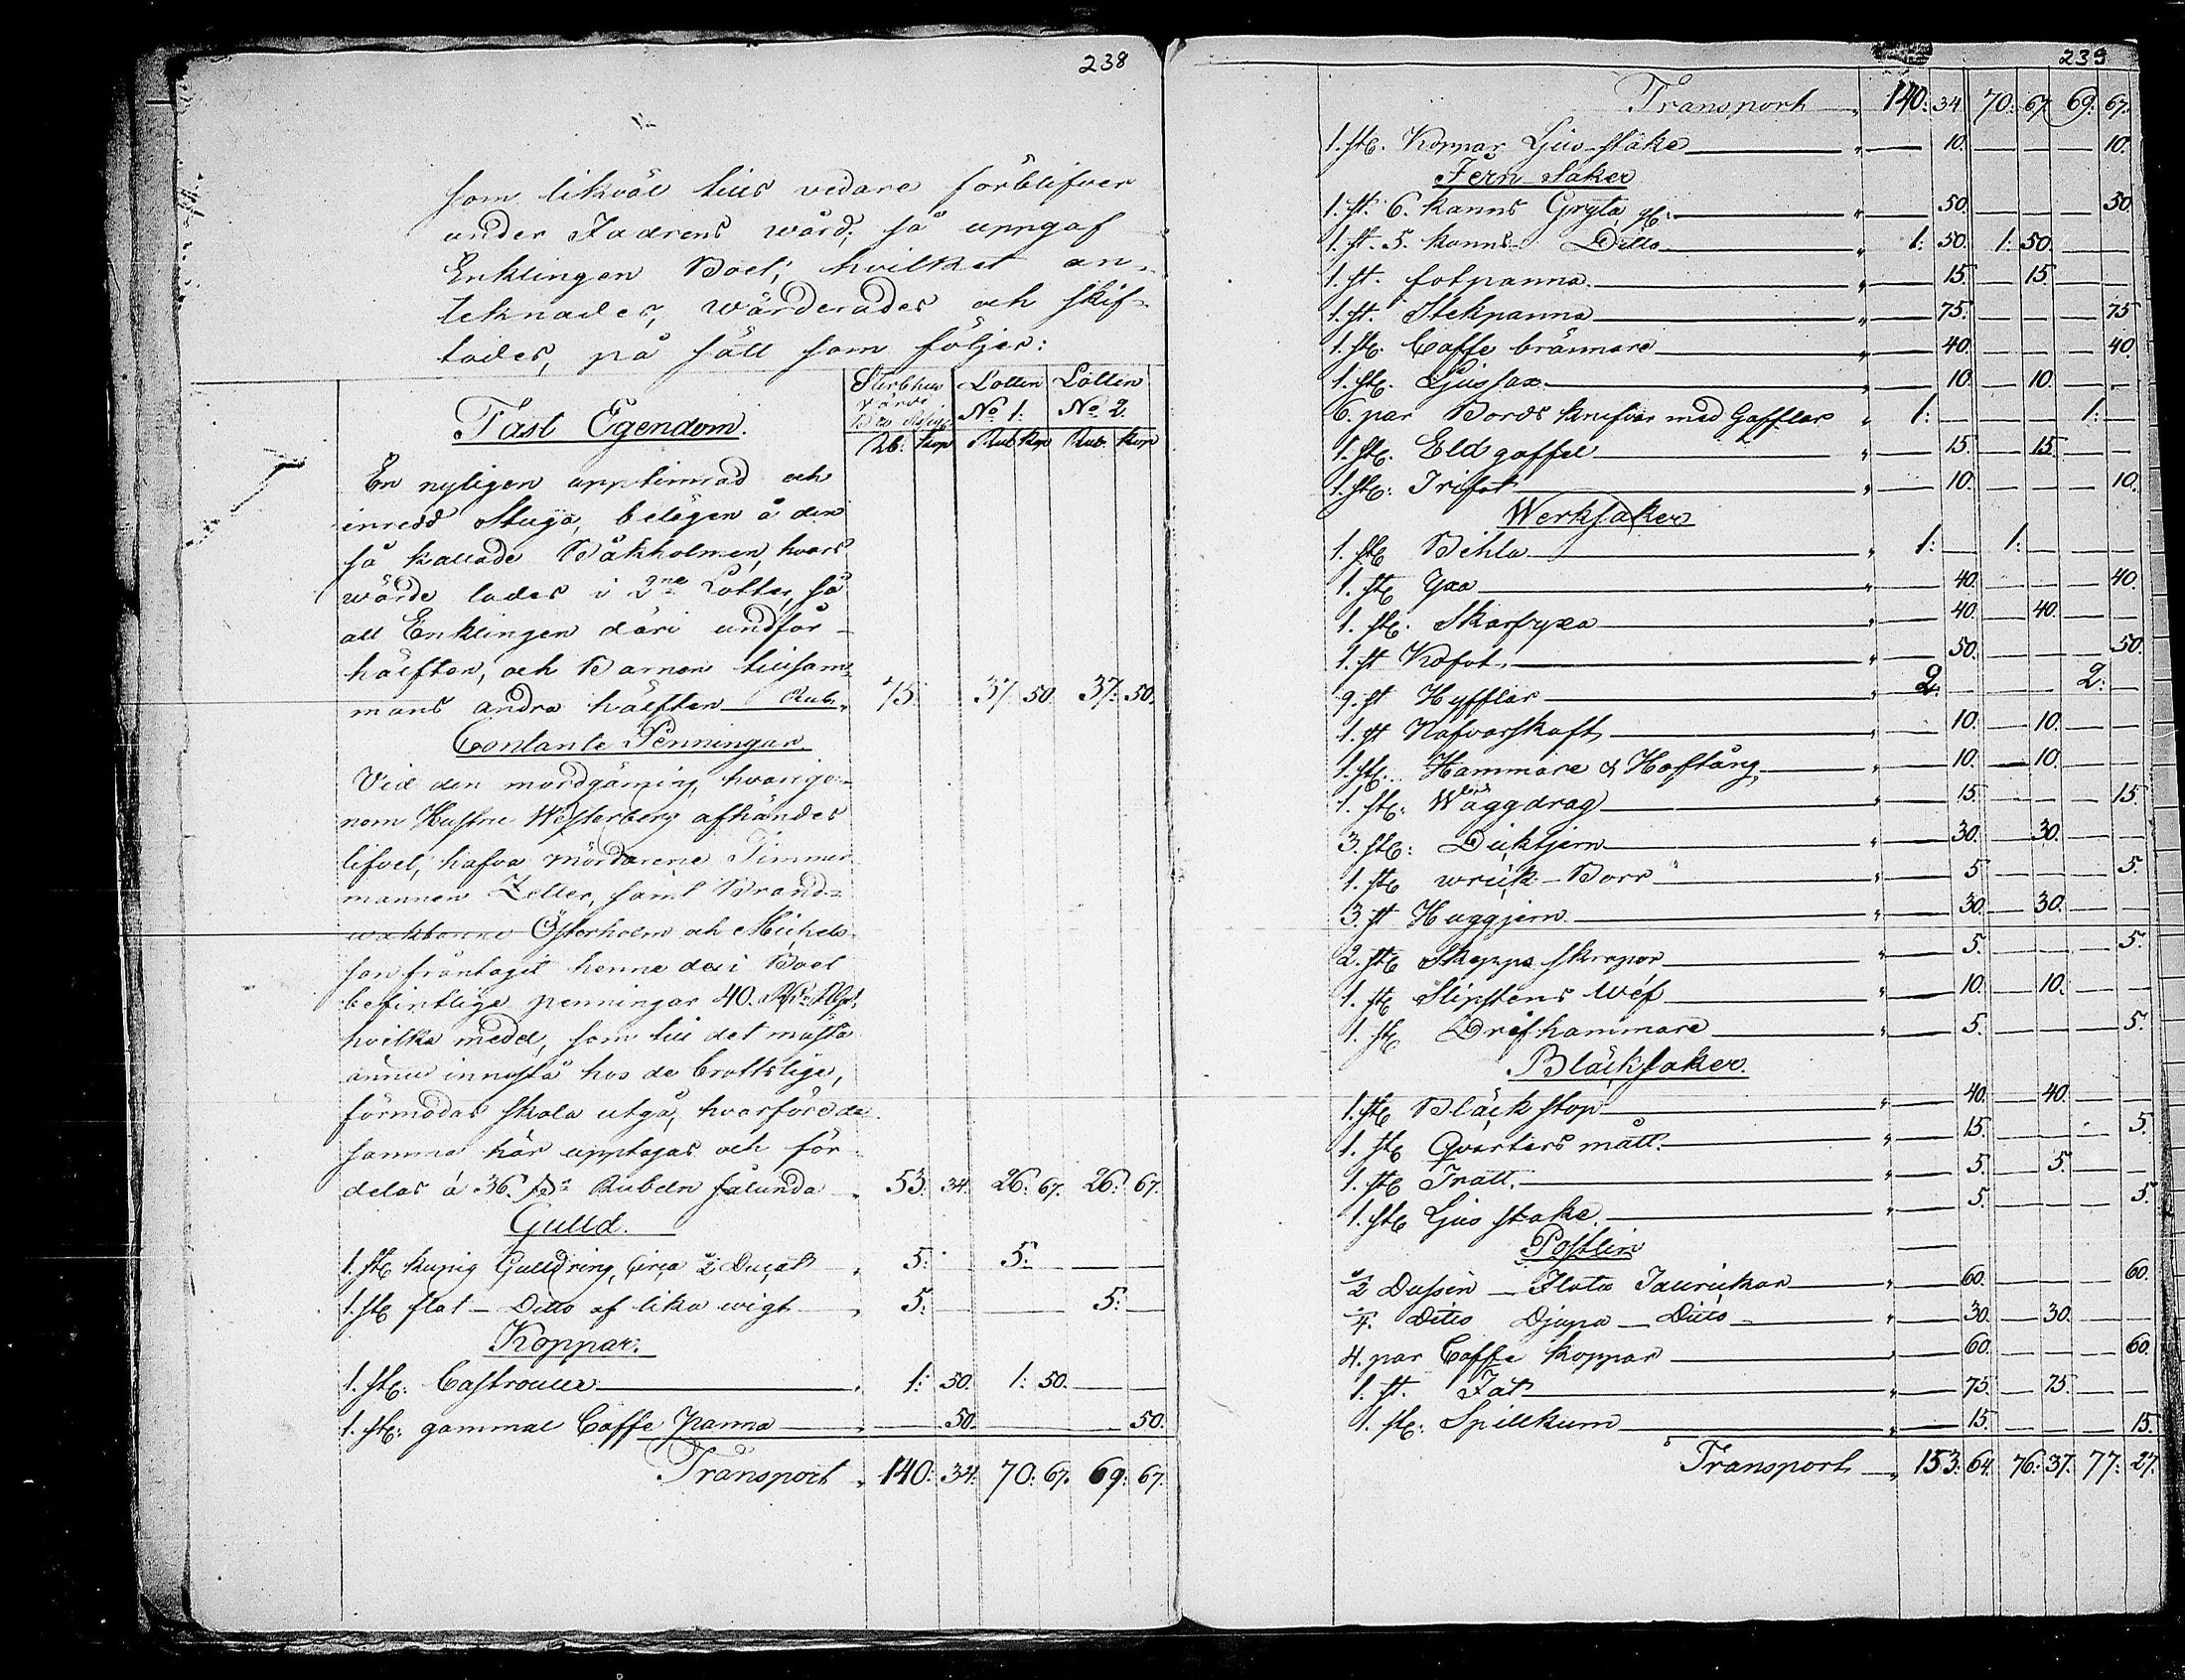 238
som likväl till vidare förblifver
under Fadrens wård; så uppgaf
Enklingen Boet, hvilket an-
teknades, wärderades och skif-
tades, på sätt som följer:
Sterbhus Lotten Lotten
värde No 1. No 2.
Fast Egendom.
Rb. Kop Rub Kop Rub. Kop
En nyligen upptimrad och
inredd Stuga, belägen å den
så kallade Båkholmen, hvars
wärde lades i 2ne Lotter, så
att Enklingen däri undfår
hälften, och Barnen tillsam-
mans andra hälften Rub. 75. 37. 50. 37. 50.
Contante Penningar.
Vid den mordgärning, hvarige-
nom Hustru Westerberg afhändes
lifvet, hafva mördarene Timmer-
mannen Zeller, samt Brand-
waktarne Österholm och Michels-
son fråntagit henne de i Boet
befintliga penningar 40.
hvilka medel, som till det mästa
ännu innestå hos de brottslige,
förmodas skola utgå, hvarföre de
samma här upptagas och för-
delas á 36. Rubeln sålunda 53. 34. 26. 67. 26. 67.
Gulld.
1. st. kupig Gulldring, circa ½ Ducat 5. 5.
1. st. flat Ditto af lika wigt 5: 5:
Koppar.
1. st. Castroull 1: 50. 1: 50.
1. st. gammal Caffe Panna 50. 50.
Transport 140: 34. 70: 67. 69: 67.
239
Transport 140: 34. 70: 67. 69: 67.
1. st. Koppar Ljus stake 10. 10.
Jern Saker
1. st. 6. kanns Gryta 50. 50.
1. st. 5. kanns Ditto 1: 50. 1: 50.
1. st. fotpanna 15. 15.
1. st. Stekpanna 75. 75
1. st. Caffe brännare 40. 40.
1. st. Ljussax 10. 10.
6. par Bords knifvar med Gafflar 1: 1:
1. st. Eld gaffel 15. 15.
1. st. Trifot 10. 10.
Werksaker
1. st. Bihla 1: 1:
1. st. Yxa 40. 40.
1. st. Skarfyxa 40. 40.
1. st Kofot 50. 50.
9. st Hyfflar 2: 2:
1. st Nafvarskaft 10. 10.
1. st. Hammare & Hoftång 10. 10.
1. st. Wäggdrag 15. 15.
3. st. Dicktjern 30. 30.
1. st. wrick-Borr 5. 5.
3. st Huggjern 30. 30.
2. st. Skepps skrapor 5. 5.
1. st. Slipstens Wef 10. 10.
1. st. Drifhammare 5. 5.
Bläcksaker.
1. st. Bläck stop 40. 40.
1. st. Qvarters mått. 15. 5.
1. st. Tratt. 5. 5.
1. st. Ljus stake. 5. 5.
Postlin
½ Dussin Flata Tallrickar 60. 60.
¼ Ditto Djupa Ditto 30. 30.
4. par Caffe koppar 60. 60.
1. st. Fat 75. 75.
1. st. Spillkum 15. 15.
Transport 153: 64. 76: 37. 77: 27.